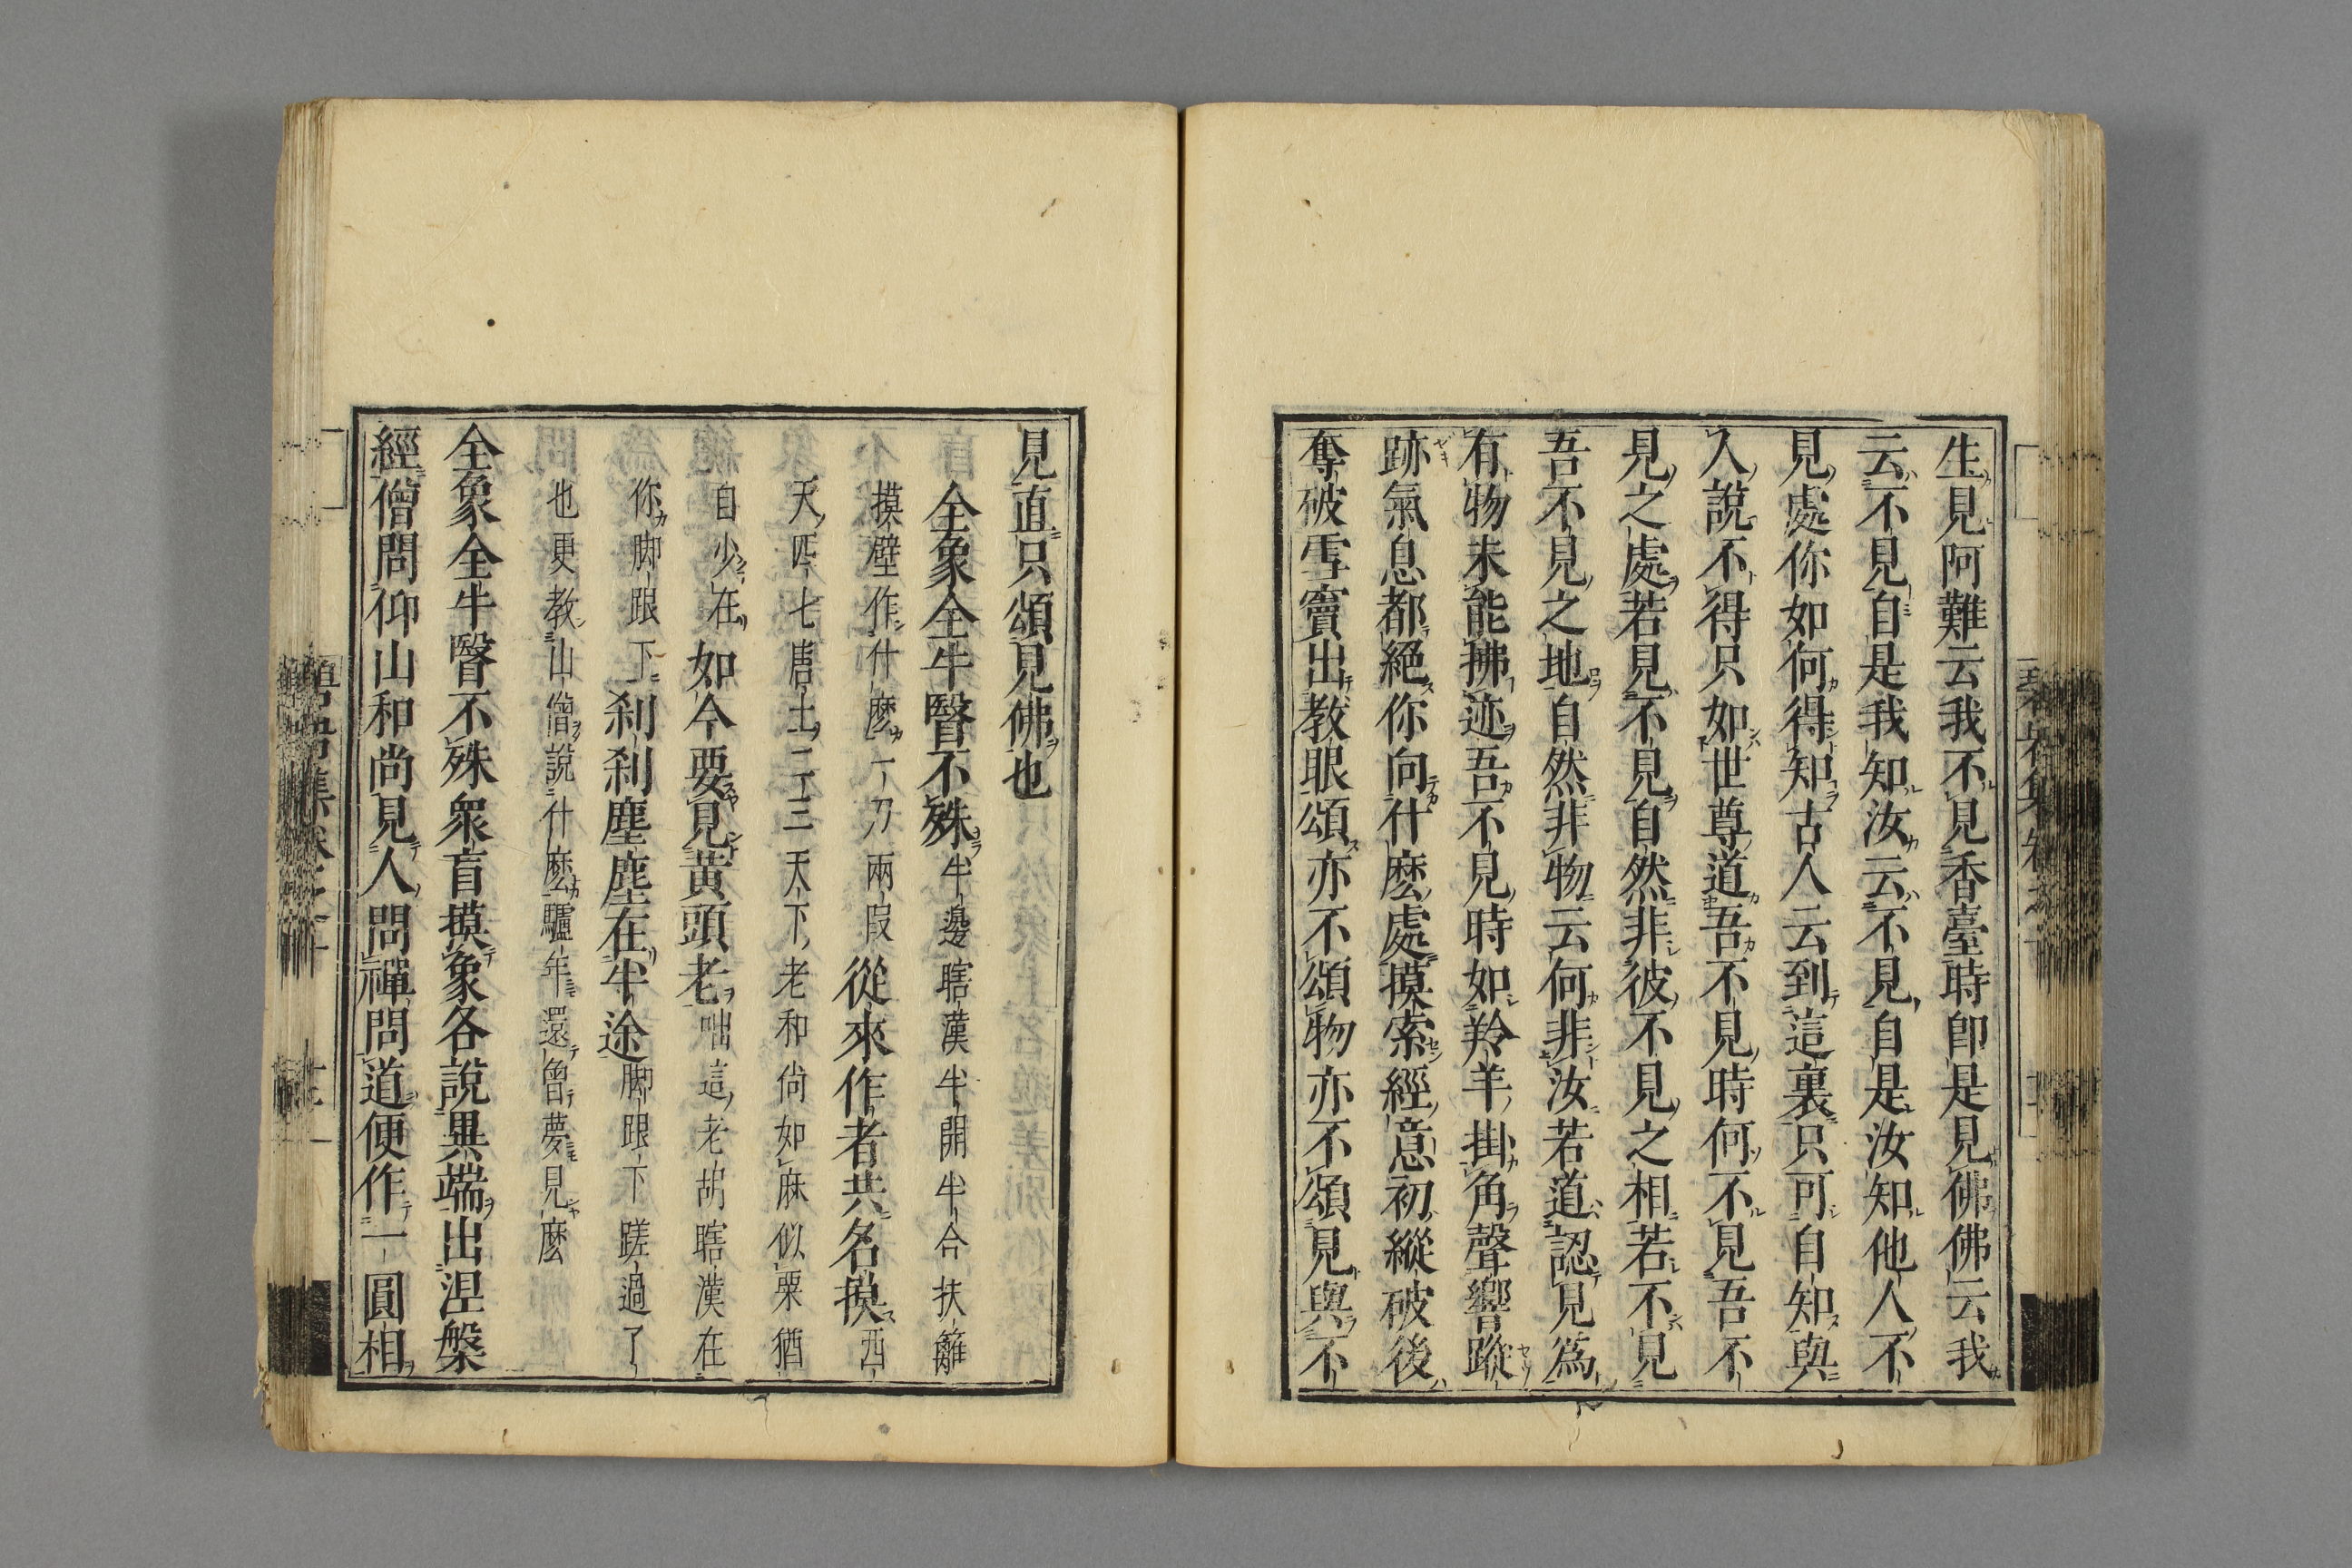 生見阿難云我不見香臺時卽是見佛佛云我
云不見自是我知汝云不見自是汝知他人不
見處你如何得知古人云到這裏只可自知與
人說不得只如世尊道吾不見時何不見吾不
見之處若見不見自然非彼不見之相若不見
吾不見之地自然非物云何非汝若道認見爲
有物未能拂迹吾不見時如羚羊掛角聲響蹤
跡氣息都絕你向什麽處摸索經意初縱破後
奪破雪竇出教眼頌亦不頌物亦不頌見與不
見直只頌見佛也
全象全牛瞖不殊半邊瞎漢半開半合扶籬
摸壁作什麽一刀兩叚從來作者共名摸西
天四七唐土二三天下老和尙如麻似粟猶
自少在如今要見黃頭老咄這老胡瞎漢在
你脚跟下刹刹塵塵在半途脚跟下蹉過了
也更教山僧說什麽驢年還曾夢見麽
全象全牛瞖不殊衆盲摸象各說異端出涅槃
經僧問仰山和尚見人問禪問道便作一圓相